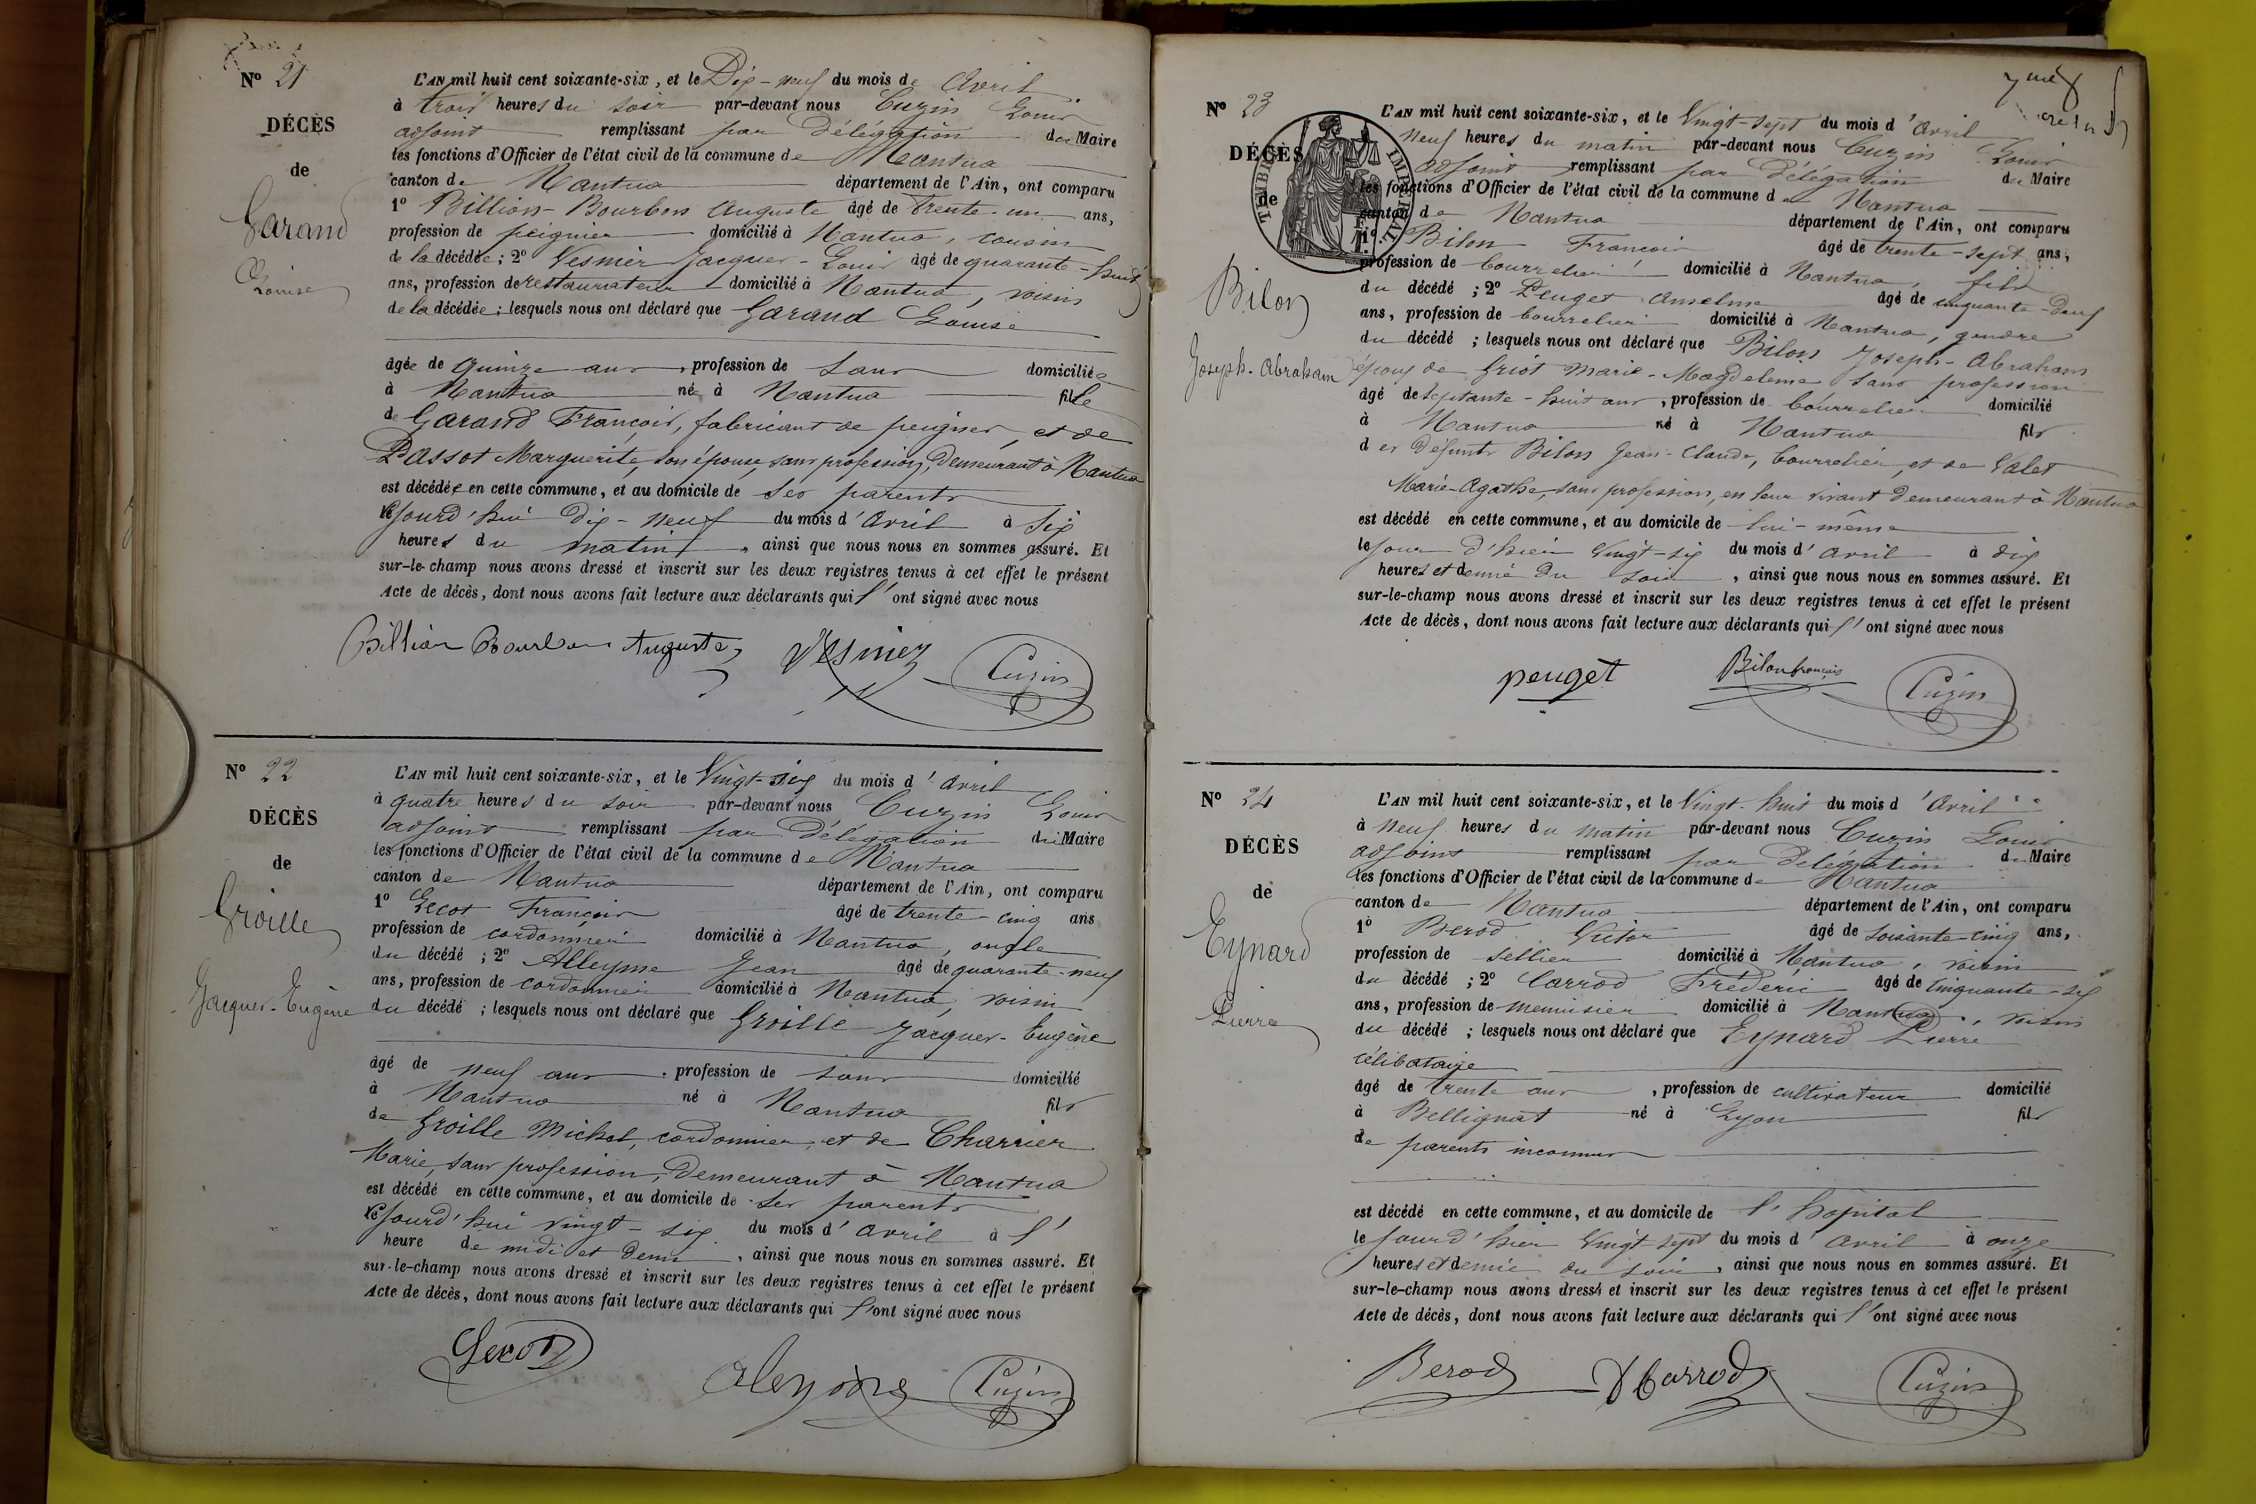 N° 21
DÉCÈS
de
Garand
Louise
L'AN mil huit cent soixante-six, et le Dix-neuf du mois de Avril
à trois heures du soir par-devant nous Cuzin Louis
adjoint remplissant par délégation du Maire
les fonctions d'Officier de l'état civil de la commune de Nantua
canton de Nantua département de l'Ain, ont comparu
1° Billion-Bourbon Auguste âgé de trente-un ans,
profession de peignier domicilié à Nantua, cousin
de la décédée; 2° Vesmier Jacques-Louis âgé de quarante-huit
ans, profession de restaurateur domicilié à Nantua, voisin
de la décédée; lesquels nous ont déclaré que Garand Louise
âgée de quinze ans, profession de sans domiciliée
à Nantua née à Nantua fille
de Garand François, fabricant de peignes, et de
Passot Marguerite, son épouse, sans profession, demeurant à Nantua
est décédée en cette commune, et au domicile de ses parents
cejourd'hui dix-neuf du mois d'avril à six
heures du matin, ainsi que nous nous en sommes assuré. Et
sur-le-champ nous avons dressé et inscrit sur les deux registres tenus à cet effet le présent
Acte de décès, dont nous avons fait lecture aux déclarants qui l'ont signé avec nous
Billion Bourbon Auguste Vesmier Cuzin
N° 22
DÉCÈS
de
Groille
Jacques-Eugène
L'AN mil huit cent soixante-six, et le Vingt-six du mois d'avril
à quatre heures du soir par-devant nous Cuzin Louis
adjoint remplissant par délégation du Maire
les fonctions d'Officier de l'état civil de la commune de Nantua
canton de Nantua département de l'Ain, ont comparu
1° Lecot François âgé de trente-cinq ans
profession de cordonnier domicilié à Nantua, oncle
du décédé; 2° Alleysne Jean âgé de quarante-neuf
ans, profession de cordonnier domicilié à Nantua, voisin
du décédé; lesquels nous ont déclaré que Groille Jacques-Eugène
âgé de neuf ans, profession de sans domicilié
à Nantua né à Nantua fils
de Groille Michel, cordonnier, et de Charrier
Marie, sans profession, demeurant à Nantua
est décédé en cette commune, et au domicile de ses parents
cejourd'hui vingt-six du mois d'avril à l'
heure de midi et demi, ainsi que nous nous en sommes assuré. Et
sur-le-champ nous avons dressé et inscrit sur les deux registres tenus à cet effet le présent
Acte de décès, dont nous avons fait lecture aux déclarants qui l'ont signé avec nous
Lecot Cuzin
7me
N° 23
DÉCÈS
de
Bilon
Joseph-Abraham
TIMBRE IMPÉRIAL
L'AN mil huit cent soixante-six, et le Vingt-sept du mois d'avril
neuf heures du matin par-devant nous Cuzin Louis
adjoint remplissant par délégation du Maire
les fonctions d'Officier de l'état civil de la commune de Nantua
canton de Nantua département de l'Ain, ont comparu
1° Bilon François âgé de trente-sept ans,
profession de bourrelier domicilié à Nantua, fils
du décédé; 2° Peuget Anselme âgé de cinquante-deux
ans, profession de bourrelier domicilié à Nantua, gendre
du décédé; lesquels nous ont déclaré que Bilon Joseph-Abraham
époux de Griot Marie-Magdeleine sans profession
âgé de septante-huit ans, profession de bourrelier domicilié
à Nantua né à Nantua fils
des défunts Bilon Jean-Claude, bourrelier, et de Valet
Marie-Agathe, sans profession, en leur vivant demeurant à Nantua
est décédé en cette commune, et au domicile de lui-même
le jour d'hier vingt-six du mois d'avril à dix
heures et demie du soir, ainsi que nous nous en sommes assuré. Et
sur-le-champ nous avons dressé et inscrit sur les deux registres tenus à cet effet le présent
Acte de décès, dont nous avons fait lecture aux déclarants qui l'ont signé avec nous
peuget Bilon françois Cuzin
N° 24
DÉCÈS
de
Eynard
Pierre
L'AN mil huit cent soixante-six, et le Vingt-huit du mois d'Avril
à neuf heures du matin par-devant nous Cuzin Louis
adjoint remplissant par délégation du Maire
les fonctions d'Officier de l'état civil de la commune de Nantua
canton de Nantua département de l'Ain, ont comparu
1° Berod Victor âgé de soixante-cinq ans,
profession de sellier domicilié à Nantua, voisin
du décédé; 2° Carrod Frédéric âgé de cinquante-six
ans, profession de menuisier domicilié à Nantua, voisin
du décédé; lesquels nous ont déclaré que Eynard Pierre
célibataire
âgé de trente ans, profession de cultivateur domicilié
à Bellignat né à Lyon fils
de parents inconnus
est décédé en cette commune, et au domicile de l'hôpital
le jour d'hier vingt sept du mois d'avril à onze
heures et demie du soir, ainsi que nous nous en sommes assuré. Et
sur-le-champ nous avons dressé et inscrit sur les deux registres tenus à cet effet le présent
Acte de décès, dont nous avons fait lecture aux déclarants qui l'ont signé avec nous
Berod Carrod Cuzin